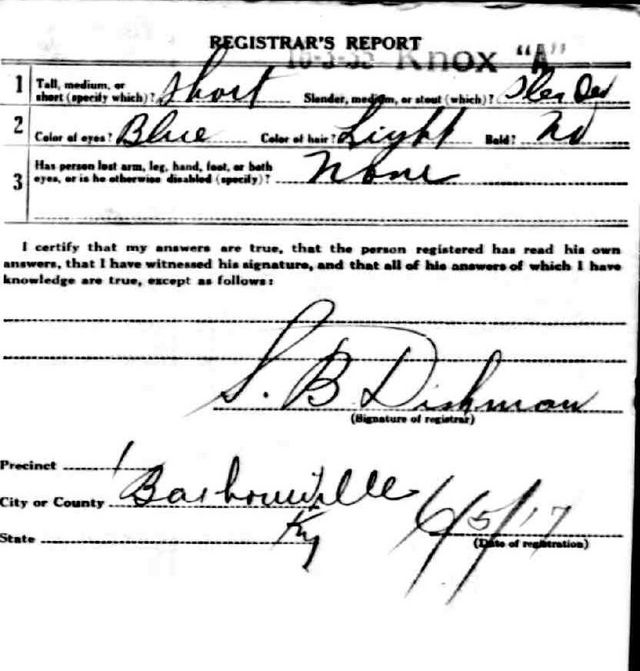 REGISTRAR'S REPORT
Knox "A"
1 Tall, medium, or short (specify which)? Short Slender, medium, or stout (which)? Slender
2 Color of eyes? Blue Color of hair? Light Bald? No
3 Has person lost arm, leg, hand, foot, or both eyes, or is he otherwise disabled (specify)? None
I certify that my answers are true, that the person registered has read his own
answers, that I have witnessed his signature, and that all of his answers of which I have
knowledge are true, except as follows:
S. B Dishman
(Signature of registrar)
Precinct 1
City or County Barbourville
State Ky 6/5/17
(Date of registration)